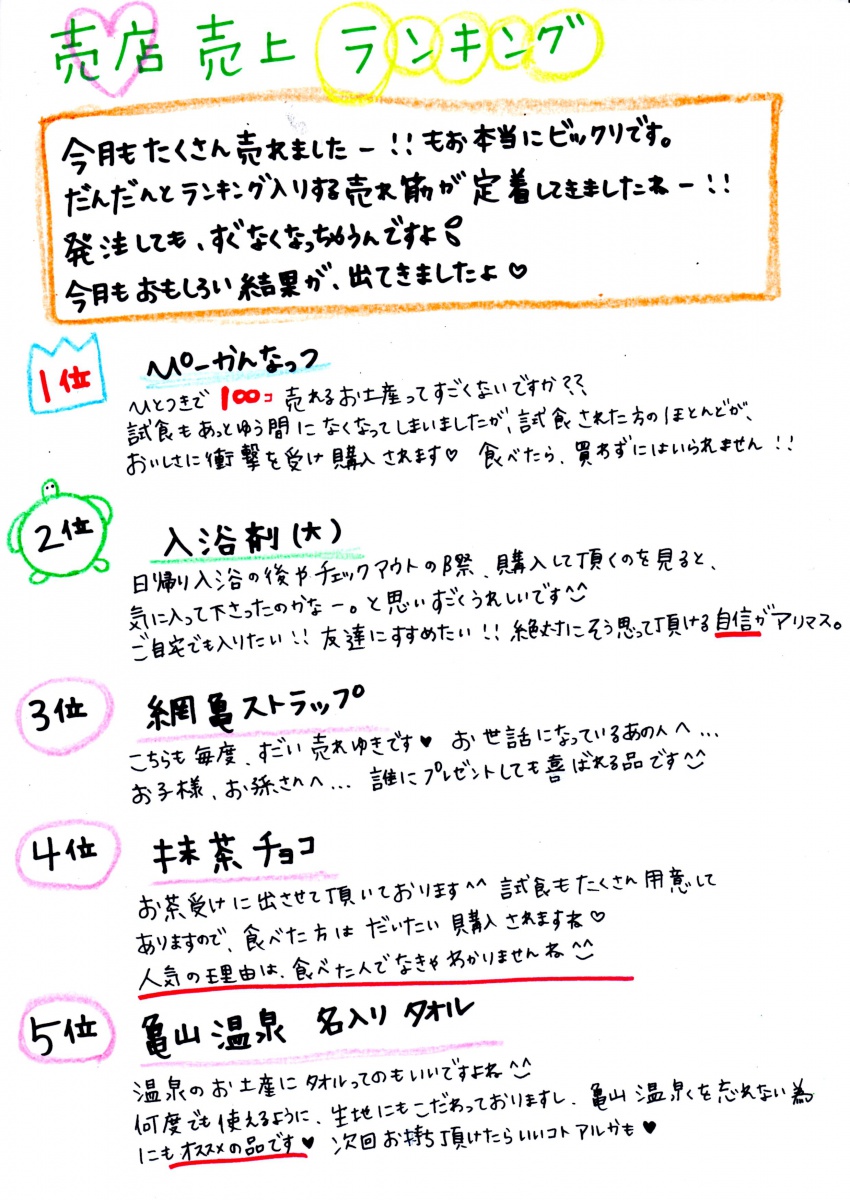 売店 売上 ランキング
今月もたくさん売れましたー!!もお本当にビックリです。
だんだんとランキング入りする売れ筋が定着してきましたねー!!
発注しても、すぐなくなっちゃうんですよ
今月もおもしろい結果が、出てきましたよ♡
1位 ぴーかんなっつ
ひとつきで 100コ 売れるお土産ってすごくないですか??
試食もあっとゆう間になくなってしまいましたが、試食された方のほとんどが、
おいしさに衝撃を受け購入されます♡ 食べたら、買わずにはいられません!!
2位 入浴剤(大)
日帰り入浴の後やチェックアウトの際、購入して頂くのを見ると、
気に入って下さったのかなー。と思いすごくうれしいです^^
ご自宅でも入りたい!!友達にすすめたい!!絶対にそう思って頂ける自信がアリマス。
3位 網亀ストラップ
こちらも毎度、すごい売れゆきです♥ お世話になっているあの人へ…
お子様、お孫さんへ… 誰にプレゼントしても喜ばれる品です^^
4位 抹茶チョコ
お茶受けに出させて頂いております^^ 試食もたくさん用意して
ありますので、食べた方はだいたい購入されますね♡
人気の理由は、食べた人でなきゃわかりませんね^^
5位 亀山温泉 名入りタオル
温泉のお土産にタオルってのもいいですよね^^
何度でも使えるように、生地にもこだわっておりますし、亀山温泉を忘れない為
にもオススメの品です♥ 次回お持ち頂けたらいいコトアルかも♥